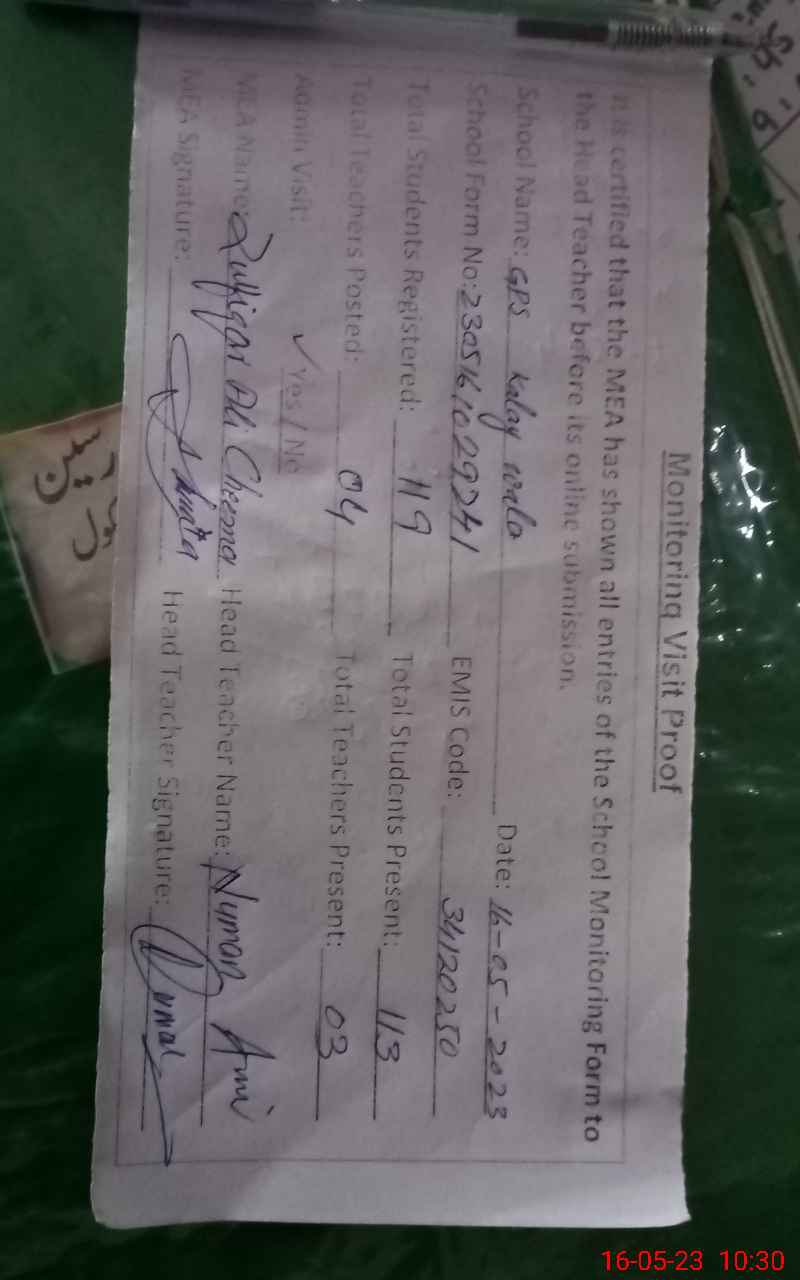 Monitoring Visit Proof
It is certified that the MEA has shown all entries of the School Monitoring Form to
the Head Teacher before its online submission.
School Name: GPS Kalay wala Date: 16-05-2023
School Form No: 2305161029241 EMIS Code: 34120250
Total Students Registered: 119 Total Students Present: 113
Total Teachers Posted: 04 Total Teachers Present: 03
Admin Visit: ✓ Yes / No
MEA Name: Zulfiqar Ali Cheema Head Teacher Name: Numan
MEA Signature: Head Teacher Signature:
16-05-23 10:30